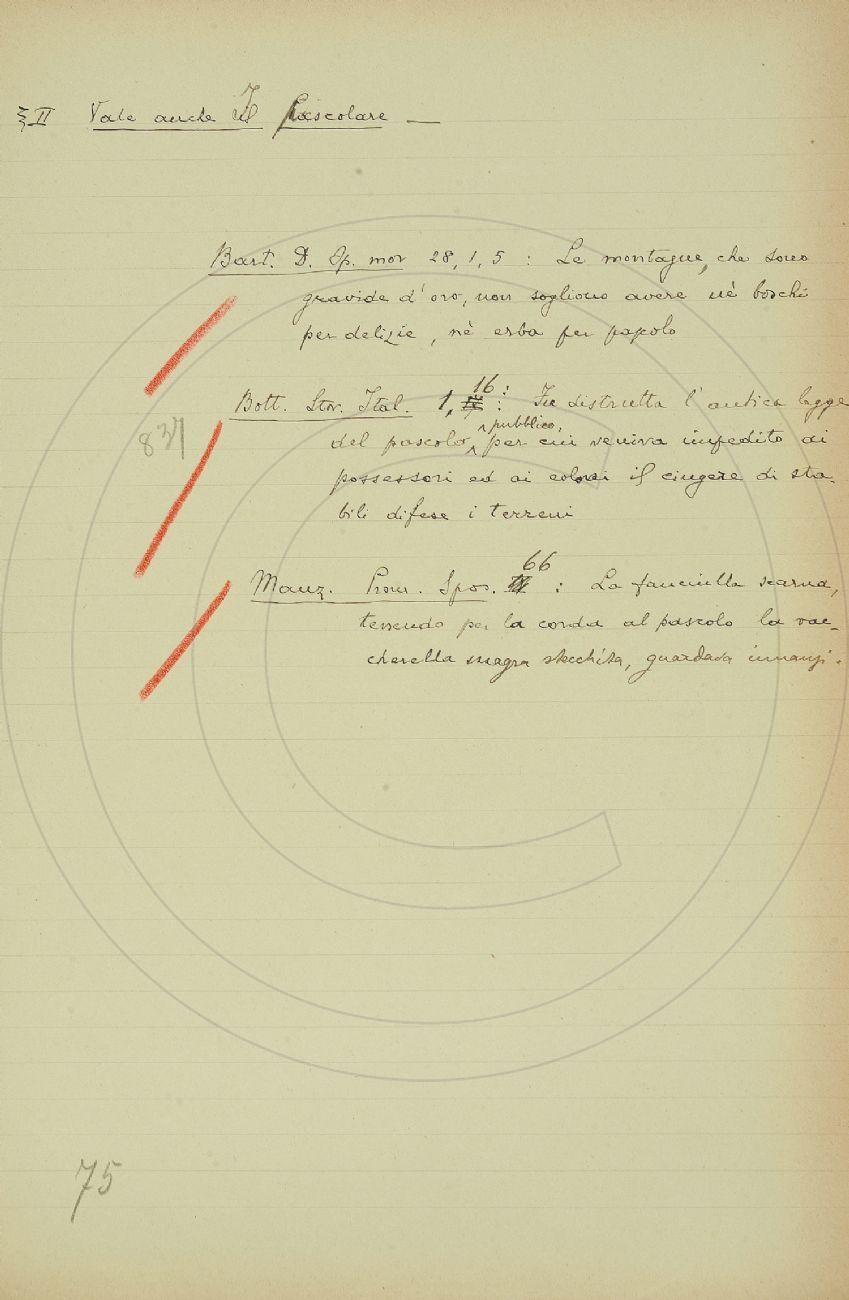 § II Vale anche Il Pascolare —
Bart. D. Op. mor 28, 1, 5 : Le montagne, che sono
gravide d'oro, non sogliono avere nè boschi
per delizie, nè erba per pascolo
16:
Bott. Stor. Ital. 1, : Fu distrutta l'antica legge
pubblico,
del pascolo, per cui veniva impedito ai
837
possessori ed ai coloni il cingere di sta-
bili difese i terreni
66
Manz. Prom. Spos. : La fanciulla scarna,
tenendo per la corda al pascolo la vac-
cherella magra stecchita, guardava innanzi.
75